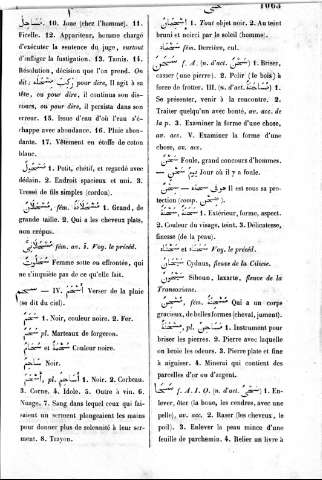 1063
10. Joue (chez l'homme). 11.
Ficelle. 12. Appariteur, homme chargé
d'exécuter la sentence du juge, surtout
d'infliger la fustigation. 13. Tamis. 14.
Résolution, décision que l'on prend. On
dit Il agit à sa
tête, ou pour dire, il continua son dis-
cours, ou pour dire, il persista dans son
erreur. 15. Issue d'eau d'où l'eau s'é-
chappe avec abondance. 16. Pluie abon-
dante. 17. Vêtement en étoffe de coton
blanc.
1. Petit, chétif, et regardé avec
dédain. 2. Endroit spacieux et uni. 3.
Tressé de fils simples (cordon).
fém. 1. Grand, de
grande taille. 2. Qui a les cheveux plats,
non crépus.
fém. av. ة Voy. le précéd.
Femme sotte ou effrontée, qui
ne s'inquiète pas de ce qu'elle fait.
— IV. أسجم Verser de la pluie
(se dit du ciel).
1. Noir, couleur noire. 2. Fer.
pl. Marteaux de forgeron.
et Couleur noire.
Noir.
pl. 1. Noir. 2. Corbeau.
3. Corne. 4. Idole. 5. Outre à vin. 6.
Nuage. 7. Sang dans lequel ceux qui fai-
saient un serment plongeaient les mains
pour donner plus de solennité à leur ser-
ment. 8. Trayon.
1. Tout objet noir. 2. Au teint
bruni et noirci par le soleil (homme).
fém. Derrière, cul.
f. A. (n. d'act.) 1. Briser,
casser (une pierre). 2. Polir (le bois) à
force de frotter. III. (n. d'act.) 1.
Se présenter, venir à la rencontre. 2.
Traiter quelqu'un avec bonté, av. acc. de
la p. 3. Examiner la forme d'une chose,
av. acc. V. Examiner la forme d'une
chose, av. acc.
Foule, grand concours d'hommes.
— Jour où il y a foule.
— Il est sous sa pro-
tection (comp.).
1. Extérieur, forme, aspect.
2. Couleur du visage, teint. 3. Délicatesse,
finesse (de la peau).
et Voy. le précéd.
Cydnus, fleuve de la Cilicie.
Sihoun, Iaxarte, fleuve de la
Transoxiane.
fém. Qui a un corps
gracieux, de belles formes (cheval, jument).
pl. 1. Instrument pour
briser les pierres. 2. Pierre avec laquelle
on broie les odeurs. 3. Pierre plate et fine
à aiguiser. 4. Minerai qui contient des
parcelles d'or ou d'argent.
f. A. I. O. (n. d'act.) 1. En-
lever, ôter (la boue, les cendres, avec une
pelle), av. acc. 2. Raser (les cheveux, le
poil). 3. Enlever la peau mince d'une
feuille de parchemin. 4. Relier un livre à